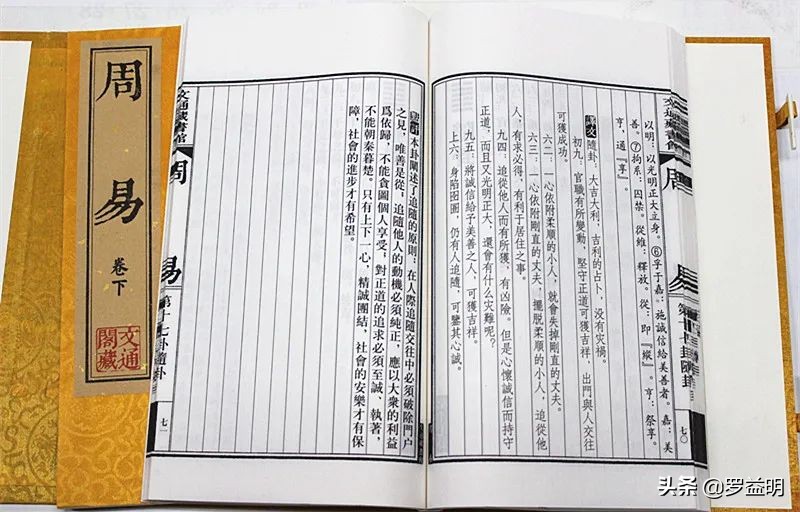 周易
卷下
文通
閣藏
文通藏書館
周易
第十七卦隨卦
七〇
以明：以光明正大立身。⑥孚于嘉：施誠信給美善者。嘉：美
善。⑦拘系：囚禁。從維：釋放。從：即『縱』。亨：祭享。
亨，通『享』。
譯文 隨卦，大吉大利，吉利的占卜，没有灾禍。
初九，官職有所變動，堅守正道可獲吉祥 出門與人交往
可獲成功。
六二，一心依附柔順的小人，就會失掉剛直的丈夫。
六三，一心依附剛直的丈夫，擺脱柔順的小人，追從他
人，有求必得，有利于居住之事。
九四，追從他人而有所獲，有凶險。但是心懷誠信而持守
正道，而且又光明正大，還會有什么灾難呢？
九五，將誠信給予美善之人，可獲吉祥。
上六，身陷囹圄，仍有人追隨，可鑒其心誠。
本卦闡述了追隨的原則：在人際追隨交往中必須破除門户
之見，唯善是從；追隨他人的動機必須純正，應以大衆的利益
爲依歸，不能貪圖個人享受；對正道的追求必須至誠、執著，
不能朝秦暮楚。只有上下一心，精誠團結，社會的安樂才有保
障，社會的進步才有希望。
文通藏書館
周易
第十七卦隨卦
七一
头条 @罗益明